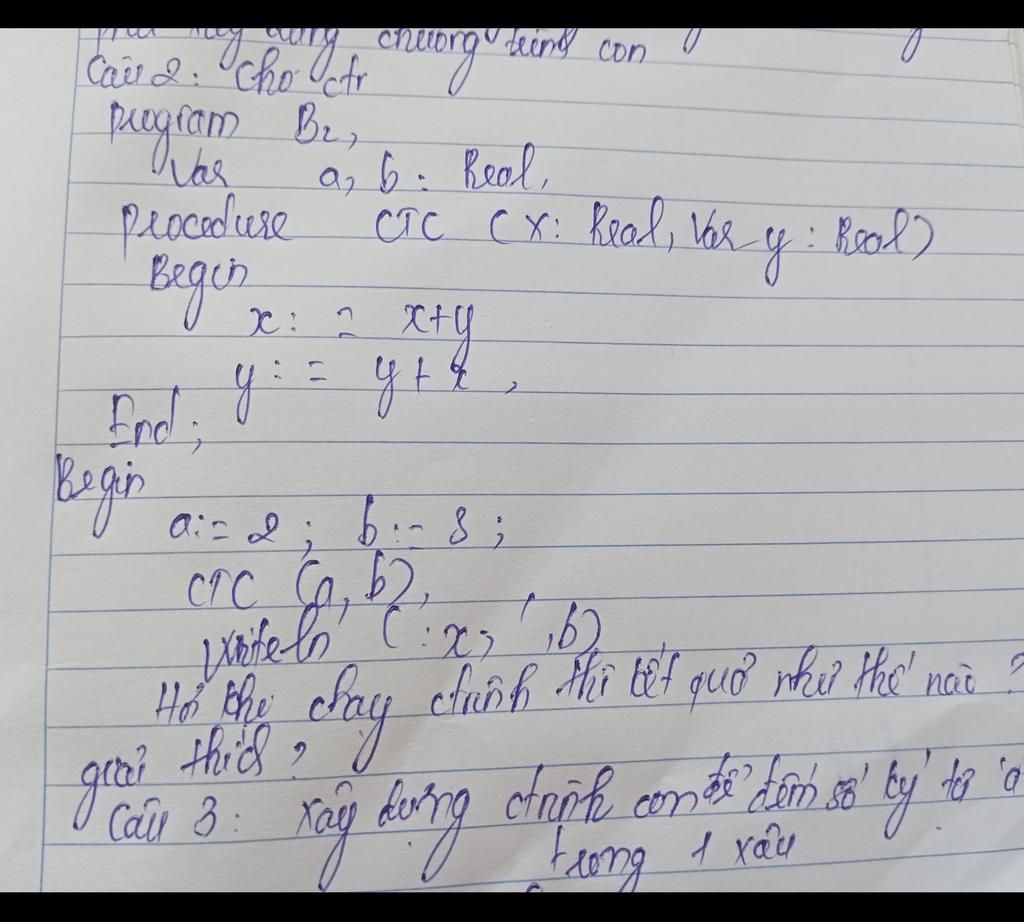 chương trình con
Câu 2: Cho ctr
program B2,
Var a, b : Real,
procedure CTC (x: Real, Var y : Real)
Begin
x : = x+y
y : = y + x ,
End;
Begin
a:= 2 ; b := 3 ;
CTC (a, b),
writeln (:x, ' ,b)
Hỏi khi chạy ctrình thì kết quả như thế nào ?
giải thích ?
Câu 3 : Xây dựng ctrình con để đếm số ký tự 'a
trong 1 xâu